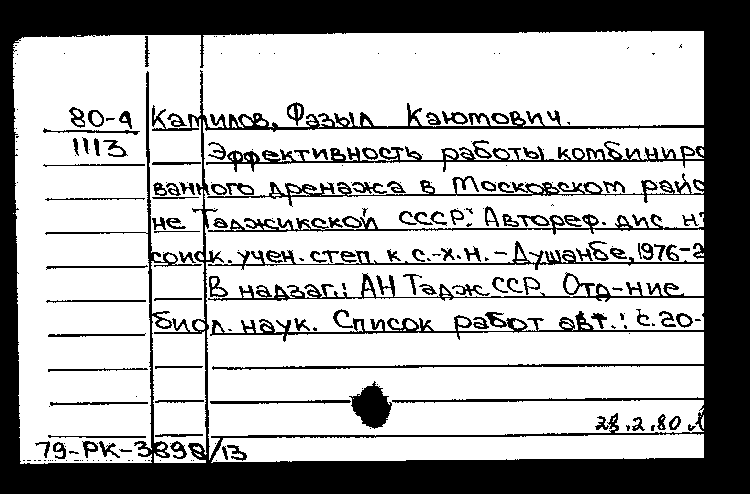 80-4 Камилов, Фазыл Каютович.
1113 Эффективность работы комбиниро
ванного дренажа в Московском райо
не Таджикской ССР: Автореф. дис. на
соиск. учен. степ. к. с.-х.н. - Душанбе, 1976-2
В надзаг.: АН Тадж ССР. Отд-ние
биол. наук. Список работ авт.: с.20-
28.2.80
79-РК-3898/13